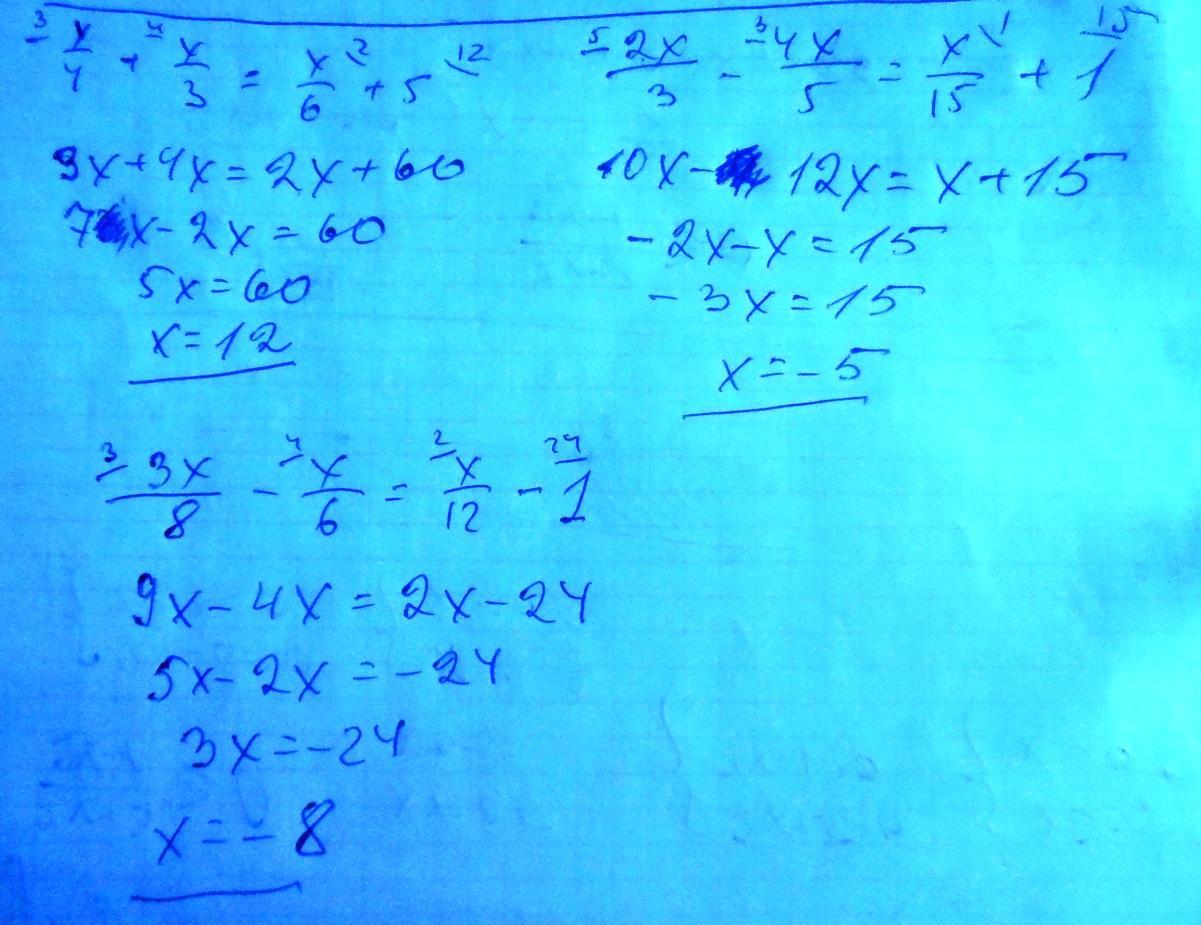 3 x/4 + 4 x/3 = x/6 2 + 5 12
3x+4x=2x+60
7x-2x=60
5x=60
x=12
5 2x/3 - 3 4x/5 = x/15 1 + 1 15
10x- 12x=x+15
-2x-x=15
-3x=15
x=-5
3 3x/8 - 4 x/6 = 2 x/12 - 24 1
9x-4x=2x-24
5x-2x=-24
3x=-24
x=-8